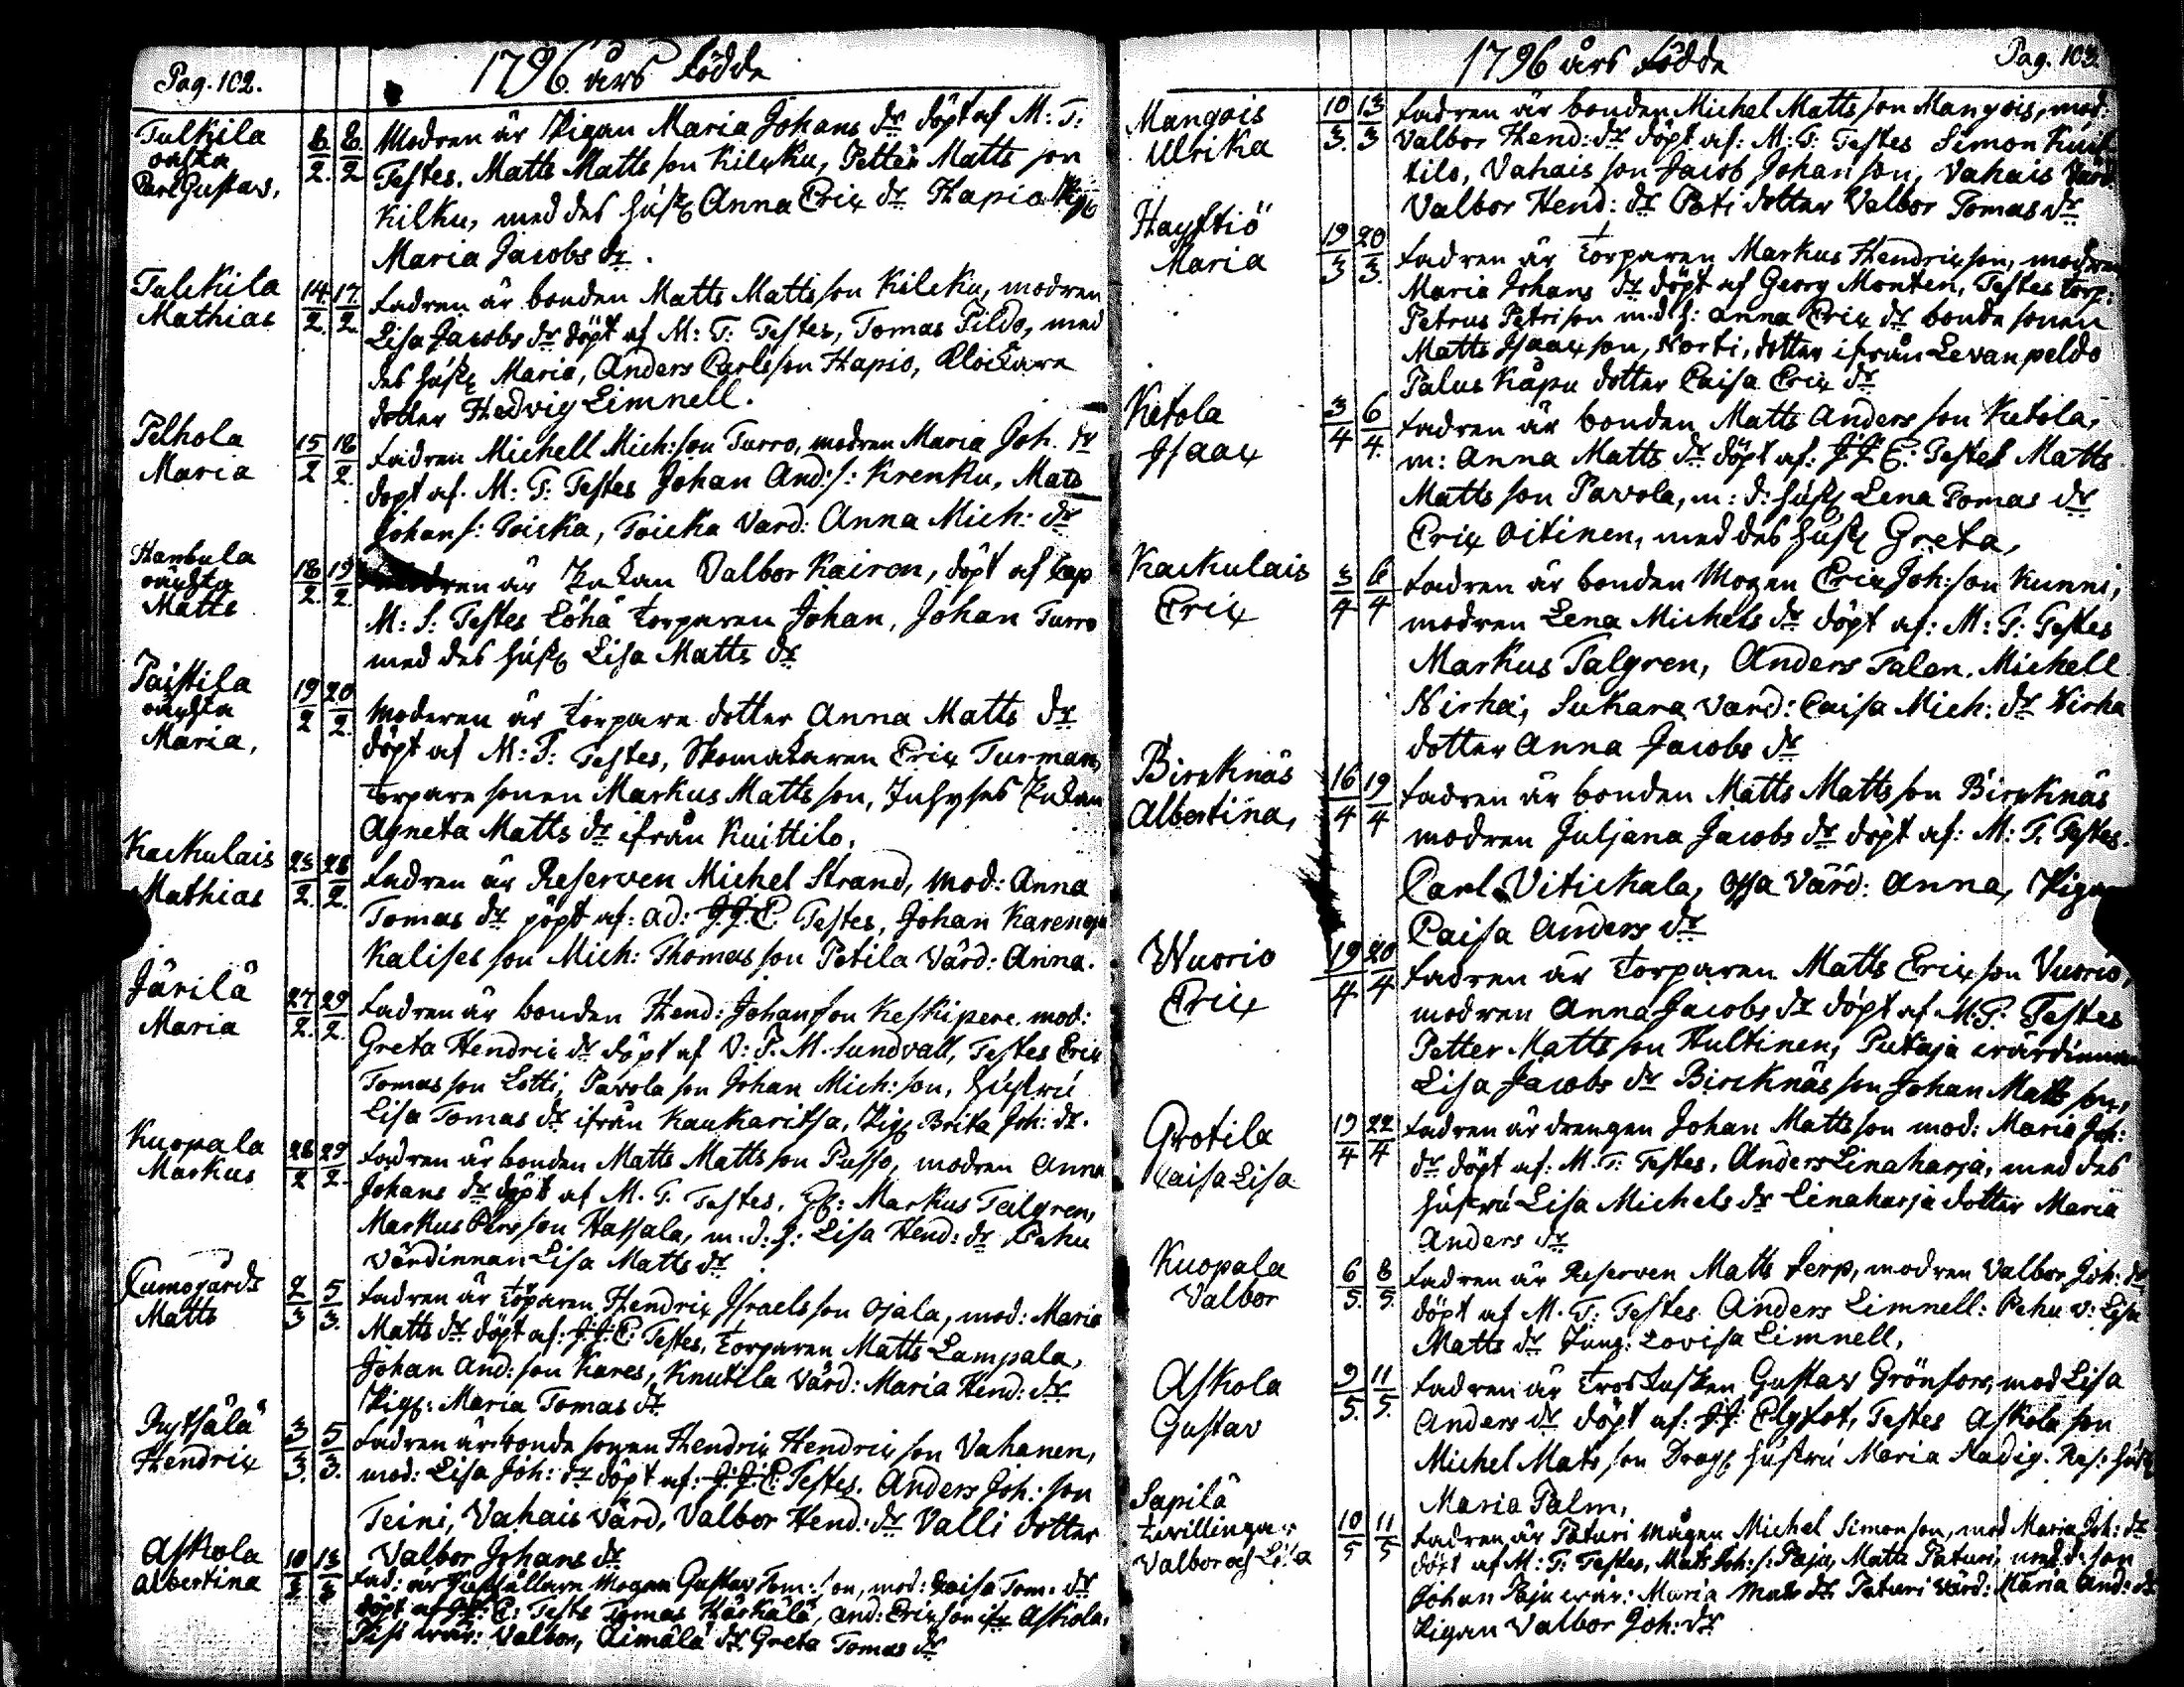 Pag. 102.
1796 års födde
Tulkila
oäkta
Carl Gustav,
8/2. 8/2
Modren är Pigan Maria Johans dr döpt af M: T:
Testes. Matts Matts son Kilkku, Petter Matts son
Kilku, med des hust Anna Erix dr Hapio
Maria Jacobs dr.
Tulckila
Mathias
14/2. 17/2.
fadren är bonden Matts Matts son Kilcku, modren
Lisa Jacobs dr döpt af M: T: Testes, Tomas Pildo, med
des hust Maria, Anders Carlsson Hapio, Klockare
dotter Hedvig Limnell.
Pelhola
Maria
15/2 18/2.
fadren Michell Mich: son Turro, modren Maria Joh. dr
döpt af. M: T: Testes Johan And: s: Krenku, Mats
Johan s: Toicka, Toicka Vard: Anna Mich: dr
oäckta
Matts
18/2. 19/2.
är Enkan Valbor Kairon, döpt af Cap
M: S: Testes Löhä torparen Johan, Johan Turro
med des hust Lisa Matts dr
Paistila
oäckta
Maria,
19/2 20/2.
Moderen är torpare dotter Anna Matts dr
döpt af M: T: Testes, Skomakaren Erix Turman,
torpare sonen Markus Matts son, Enkan
Agneta Matts dr ifrån Kuittilo.
Kackulais
Mathias
25/2. 28/2.
fadren är Reserven Michel Strand, Mod: Anna
Tomas dr döpt af: ad: J. J. E. Testes, Johan Karenoja
Kalises son Mich: Thomas son Petila Värd: Anna.
Järilä
Maria
27/2. 29/2.
fadren är bonden Hend: Johan son Keskipere. mod:
Greta Hendrix dr döpt af V: P. M. Sundvall, Testes Erix
Tomas son Lotti, Pavola son Johan Mich: son, hustru
Lisa Tomas dr ifrån Kaukaritsa, Pig Brita Joh: dr.
Kuopala
Markus
28/2 29/2.
fadren är bonden Matts Matts son Passo, modren Anna
Johans dr döpt af M. T. Testes, Markus Talgren,
Markus Pers son Hassala, m: d: h: Lisa Hend: dr Pehu
värdinnan Lisa Matts dr
Cumogårds
Matts
2/3 5/3.
fadren är toparen Hendrix Israelsson Ojala, mod: Maria
Matts dr döpt af: J. J. E: Testes, torparen Matts Lampala,
Johan And: son Kares, Knutila Värd: Maria Hend: dr
Pig: Maria Tomas dr
Hendrix
3/3. 5/3.
fadren är bonde sonen Hendrix Hendrix son Vahanen,
mod: Lisa Joh: dr döpt af: J. J. E: Testes. Anders Joh: son
Teini, Vahais Värd, Valbor Hend: dr Valli dotter
Valbor Johans dr
Askola
albertina
10/3 13/3
fad: är Mogen Gustav Tom: son, mod: Caisa Tom. dr
döpt af J. J. E: Tests Tomas Häckälä, and: Erix son ifr Askola,
värd: Valbor, Aimälä dr Greta Tomas dr
1796 års födde
Pag. 103.
Mangois
Ulrika
10/3. 13/3
fadren är bonden Michel Matts son Mangois, mod:
Valbor Hend: dr döpt af: M: T: Testes Simon Kuit
tilo, Vahais son Jacob Johan son, Vahais Värd
Valbor Hend: dr Pati dotter Valbor Tomas dr
Haystiö
Maria
19/3 20/3.
fadren är torparen Markus Hendrix son, modren
Maria Johans dr döpt af Georg Monten, Testes torp:
Petrus Petri son m: d h: anna Erix dr bonde sonen
Matts Isaax son, Norti, dotter ifrån Levanpeldo
Palus Kåpu dotter Caisa Erix dr
Ketola
Isaax
3/4 6/4.
fadren är bonden Matts anders son Ketola,
m: anna Matts dr döpt af: J. J. E: Testes Matts
Matts son Pavola, m: d: hust Lena Tomas dr
Erix Oitinen, med des hust Greta,
Kackulais
Erix
3/4 6/4
fadren är bonden Mogen Erix Joh: son Kunni,
modren Lena Michels dr döpt af: M: T: Testes
Markus Talgren, Anders Talen. Michell
Nirha, Sukara vard: Caisa Mich: dr Nirha
dotter Anna Jacobs dr
Bircknäs
Albertina,
16/4 19/4
fadren är bonden Matts Matts son Bircknäs
modren Juljana Jacobs dr döpt af: M: T. Testes.
Carl Vitickala, Ossa Värd: anna, Pigan
Caisa Anders dr
Wuorio
Erix
19/4 20/4
fadren är torparen Matts Erix son Vuorio,
modren Anna Jacobs dr döpt af M. T. Testes
Petter Matts son Hultinen, Putaja wärdinnan
Lisa Jacobs dr Bircknäs son Johan Matts son,
Grotila
Caisa Lisa
19/4 22/4
fadren är drengen Johan Matts son mod: Maria Joh:
dr döpt af: M. T: Testes, Anders Linaharja, med des
hustru Lisa Michels dr Linaharja dotter Maria
Anders dr
Kuopala
Valbor
6/5. 8/5.
fadren är Reserven Matts Terp, modren Valbor Joh: dr
döpt af M. T: Testes Anders Limnell: Pehu v: Lisa
Matts dr Jung: Lovisa Limnell,
Askola
Gustav
9/5. 11/5.
fadren är Gustav Grönfors, mod Lisa
Anders dr döpt af: J: J: Elgfot, Testes Askola son
Michel Mats son Drag hustru Maria Nadig. Res: hust
Maria Palm,
Sapilä
tvillingar
Valbor och Lisa
10/5 11/5
fadren är Paturi Mågen Michel Simon son, mod Maria Joh: dr
döpt af M: T: Testes, Mats Joh: s: Paja, Matts Paturi, med d: son
Johan Paju wär: Maria Mats dr Paturi värd: Maria And: dr
Pigan Valbor Joh: dr